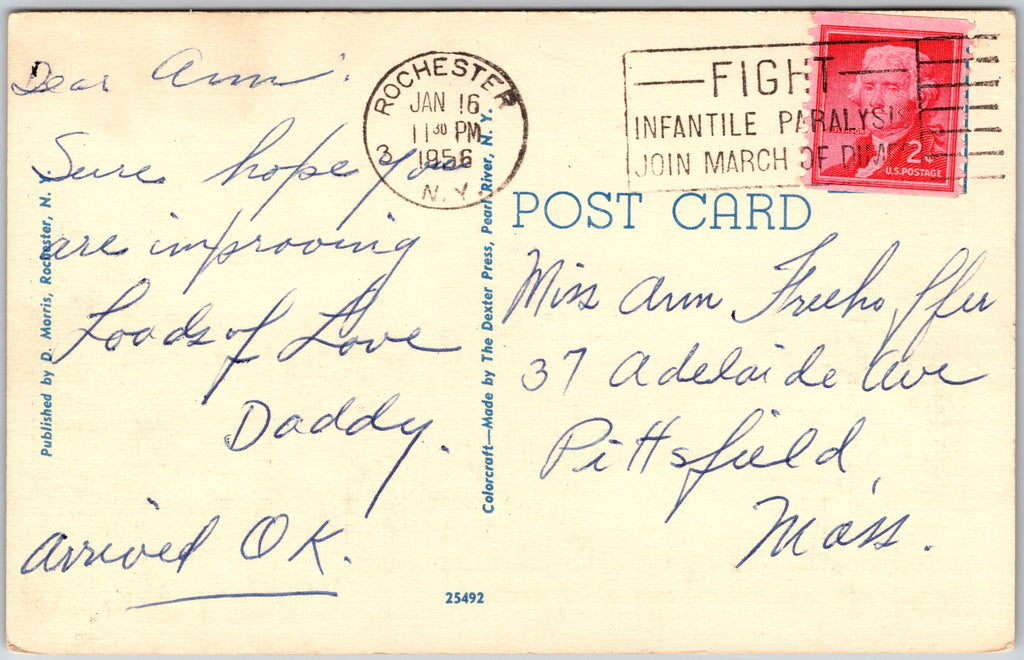 Dear Ann:
Sure hope you
are improving
Loads of Love
Daddy.
Arrived OK.
Published by D. Morris, Rochester, N. Y.
Colorcraft—Made by The Dexter Press, Pearl River, N. Y.
25492
ROCHESTER
JAN 16
11 30 PM
1956
3
N.Y.
FIGHT
INFANTILE PARALYSIS
JOIN MARCH OF DIMES
2¢
U.S. POSTAGE
POST CARD
Miss Ann Freehoffer
37 Adelaide Ave
Pittsfield,
Mass.